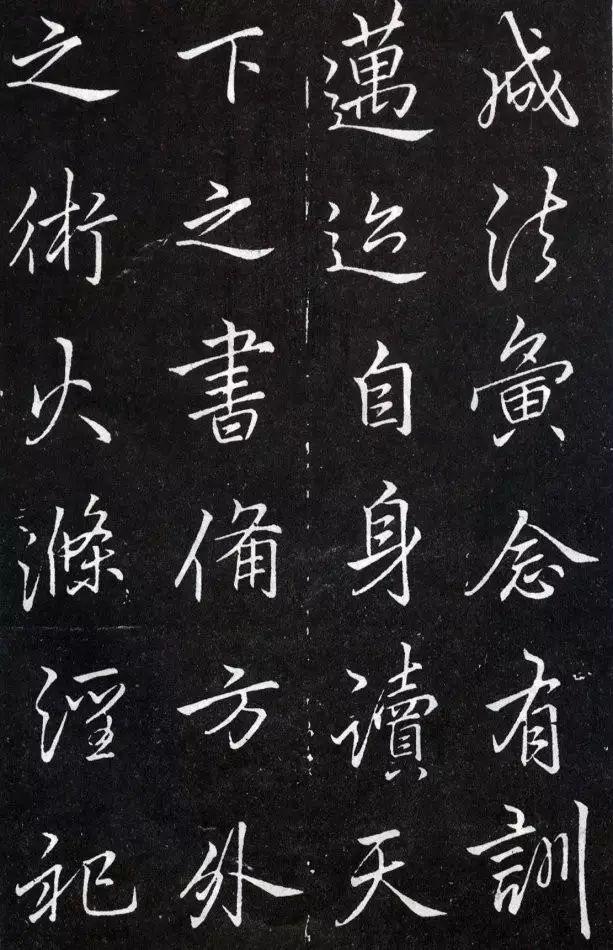 咸法夤念有訓
邁迨自身讀天
下之書備方外
之術火滌淫祀